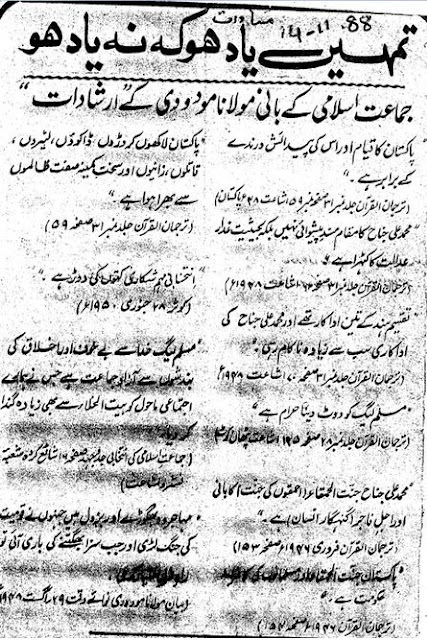 مساوات 14-11-88
تمہیں یاد ہو کہ نہ یاد ہو
جماعت اسلامی کے بانی مولانا مودودی کے "ارشادات"
پاکستان کا قیام اور اس کی پیدائش درندے
کے برابر ہے۔"
(ترجمان القرآن جلد نمبر ۳۱ صفحہ نمبر ۵۹ اشاعت ۴۸ء پاکستان)
"محمد علی جناح کا مقام مسند پیشوائی نہیں بلکہ بحیثیت غدار
عدالت کا کٹہرا ہے۔
(ترجمان القرآن جلد نمبر ۳۱ صفحہ اشاعت ۱۹۴۸ء)
تقسیم ہند کے تین اداکار تھے اور محمد علی جناح کی
اداکاری سب سے زیادہ ناکام رہی۔"
(ترجمان القرآن جلد نمبر ۳۱ صفحہ ۷۰ اشاعت ۱۹۴۸ء)
"مسلم لیگ کو ووٹ دینا حرام ہے"
(ترجمان القرآن جلد نمبر ۲۸ صفحہ ۱۴۵ اشاعت
محمد علی جناح جنت الحمقاء (احمقوں کی جنت) کا بانی
اور اجل فاجر (گنہگار انسان) ہے۔"
(ترجمان القرآن فروری ۱۹۴۶ء صفحہ ۱۵۳)
"پاکستان جنت الحمقاء اور مسلمانوں کی
حکومت ہے۔"
۱۹۴۶ء صفحہ ۱۵۴)
"پاکستان لاکھوں کروڑوں، ڈاکوؤں، لٹیروں،
قاتلوں، زانیوں اور سخت کمینہ صفت ظالموں
سے بھرا ہوا ہے۔"
(ترجمان القرآن جلد نمبر ۳۱ صفحہ ۵۹)
"انتخابی مہم شکاری کتوں کی دوڑ ہے۔"
(کوثر ۲۸ جنوری ۱۹۵۰ء)
"مسلم لیگ خدا سے بے خوف اور اخلاق کی
بندشوں سے آزاد جماعت ہے جس نے ہمارے
اجتماعی ماحول کو بیت الخلاء سے بھی زیادہ گندا
کر دیا۔"
(جماعت اسلامی کی انتخابی جدوجہد صفحہ ۱۶ شائع کردہ شعبہ
نشر و اشاعت)
"مہاجر وہ بھگوڑے اور بزدل ہیں جنہوں نے قومیت
کی جنگ لڑی اور جب سزا بھگتنے کی باری آئی تو
(بیان مولانا مودودی نوائے وقت ۲۹ اگست ۱۹۴۸ء)